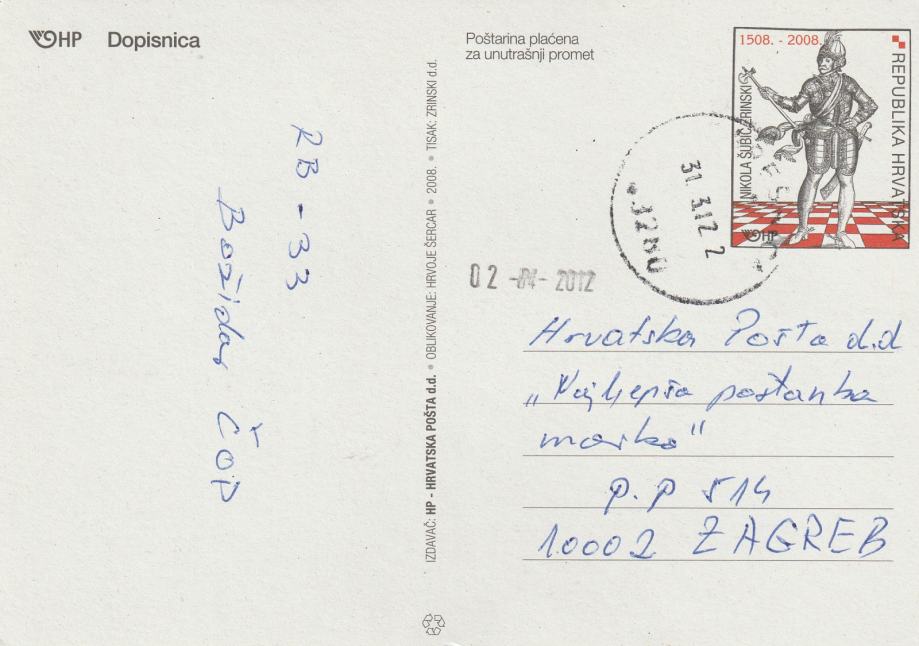 HP Dopisnica
Poštarina plaćena
za unutrašnji promet
1508. - 2008.
NIKOLA ŠUBIĆ ZRINSKI
REPUBLIKA HRVATSKA
HP
31.3.12 2
02 -04- 2012
RB-33
Božidar ČOP
IZDAVAČ: HP - HRVATSKA POŠTA d.d. • OBLIKOVANJE: HRVOJE ŠERCAR • 2008. • TISAK: ZRINSKI d.d.
Hrvatska Pošta d.d
„Najljepša poštanka
marka"
p.p 514
10002 ZAGREB